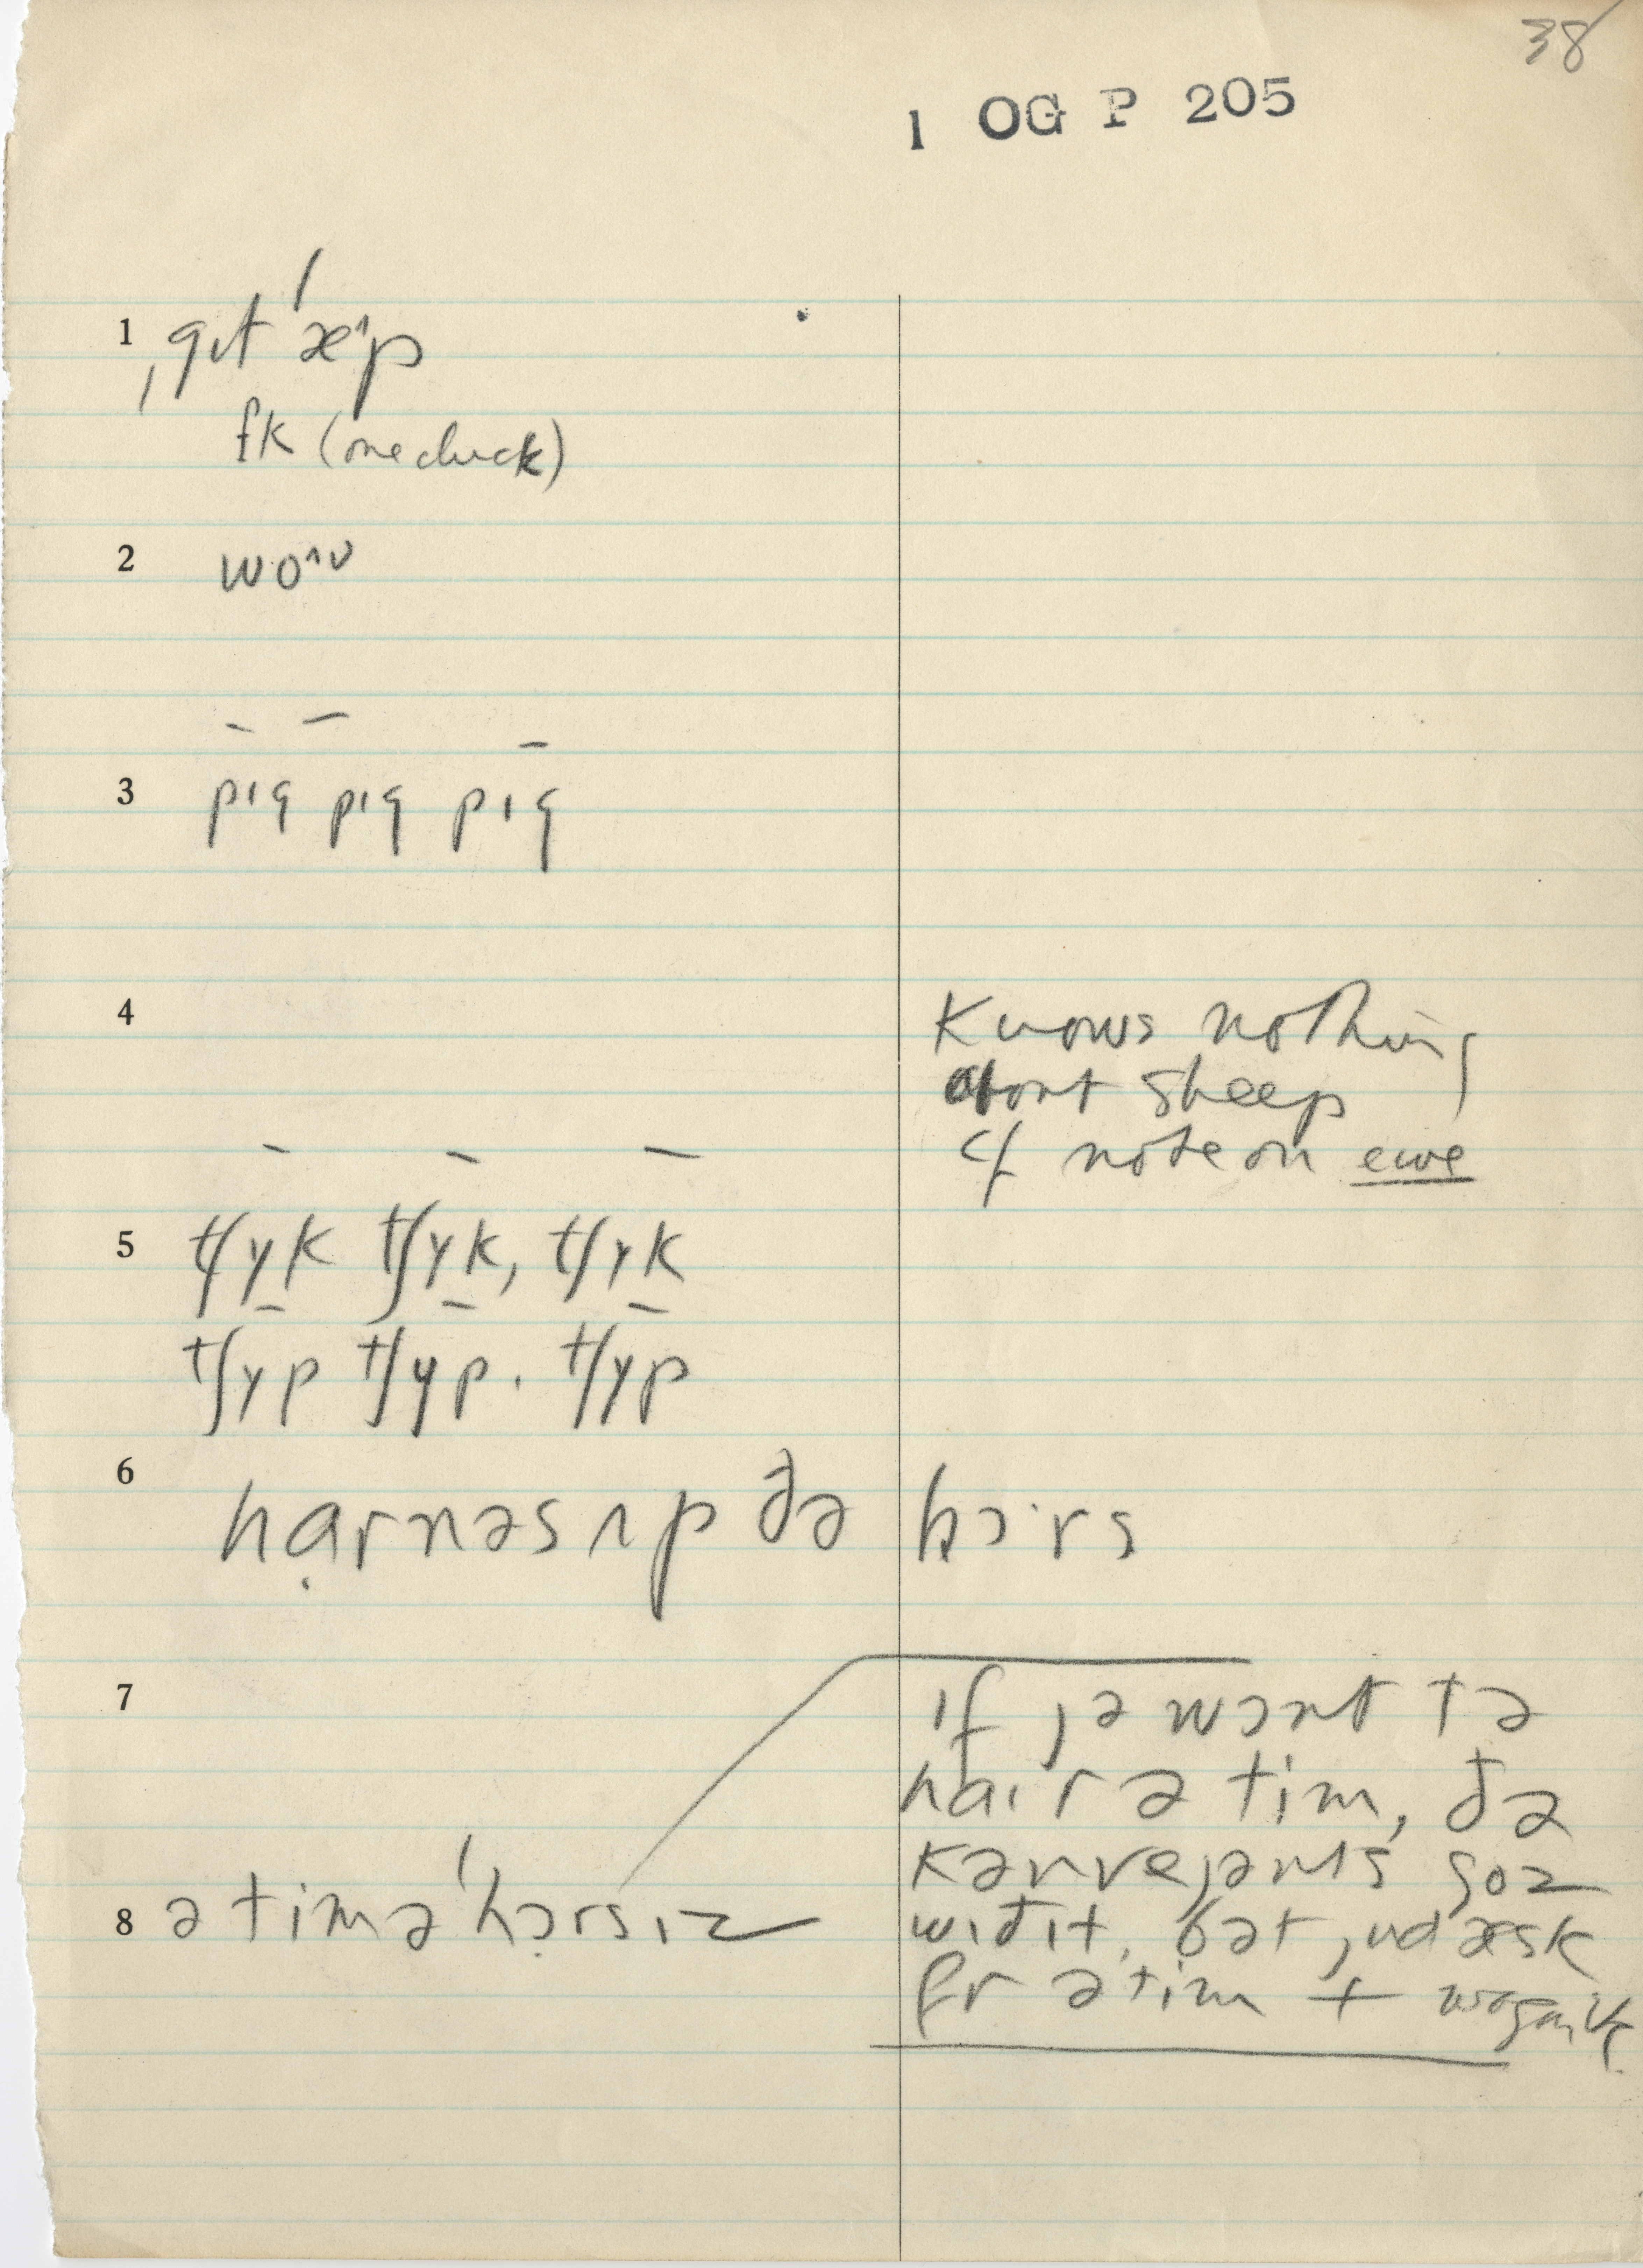 38
1 OG P 205
1 ˌgɪt ˈæ^p
ʄk (one cluck)
2 wo^ʊ
3 pɪg pɪg pɪg
4 Knows nothing
about sheep
cf note on ewe
5 tʃɤk tʃɤk, tʃɤk
tʃɤp tʃɤp. tʃɤp
6 hạrnəs ʌp ðə hɔ·rs
7 ɪf jə wɔnt tə
haɪr ə tim, ðə
kənvejəns goz
wɪð ɪt, bət jud æsk
fr ə tim +
8 ə tim ə ˈhɔ̣rsɪz